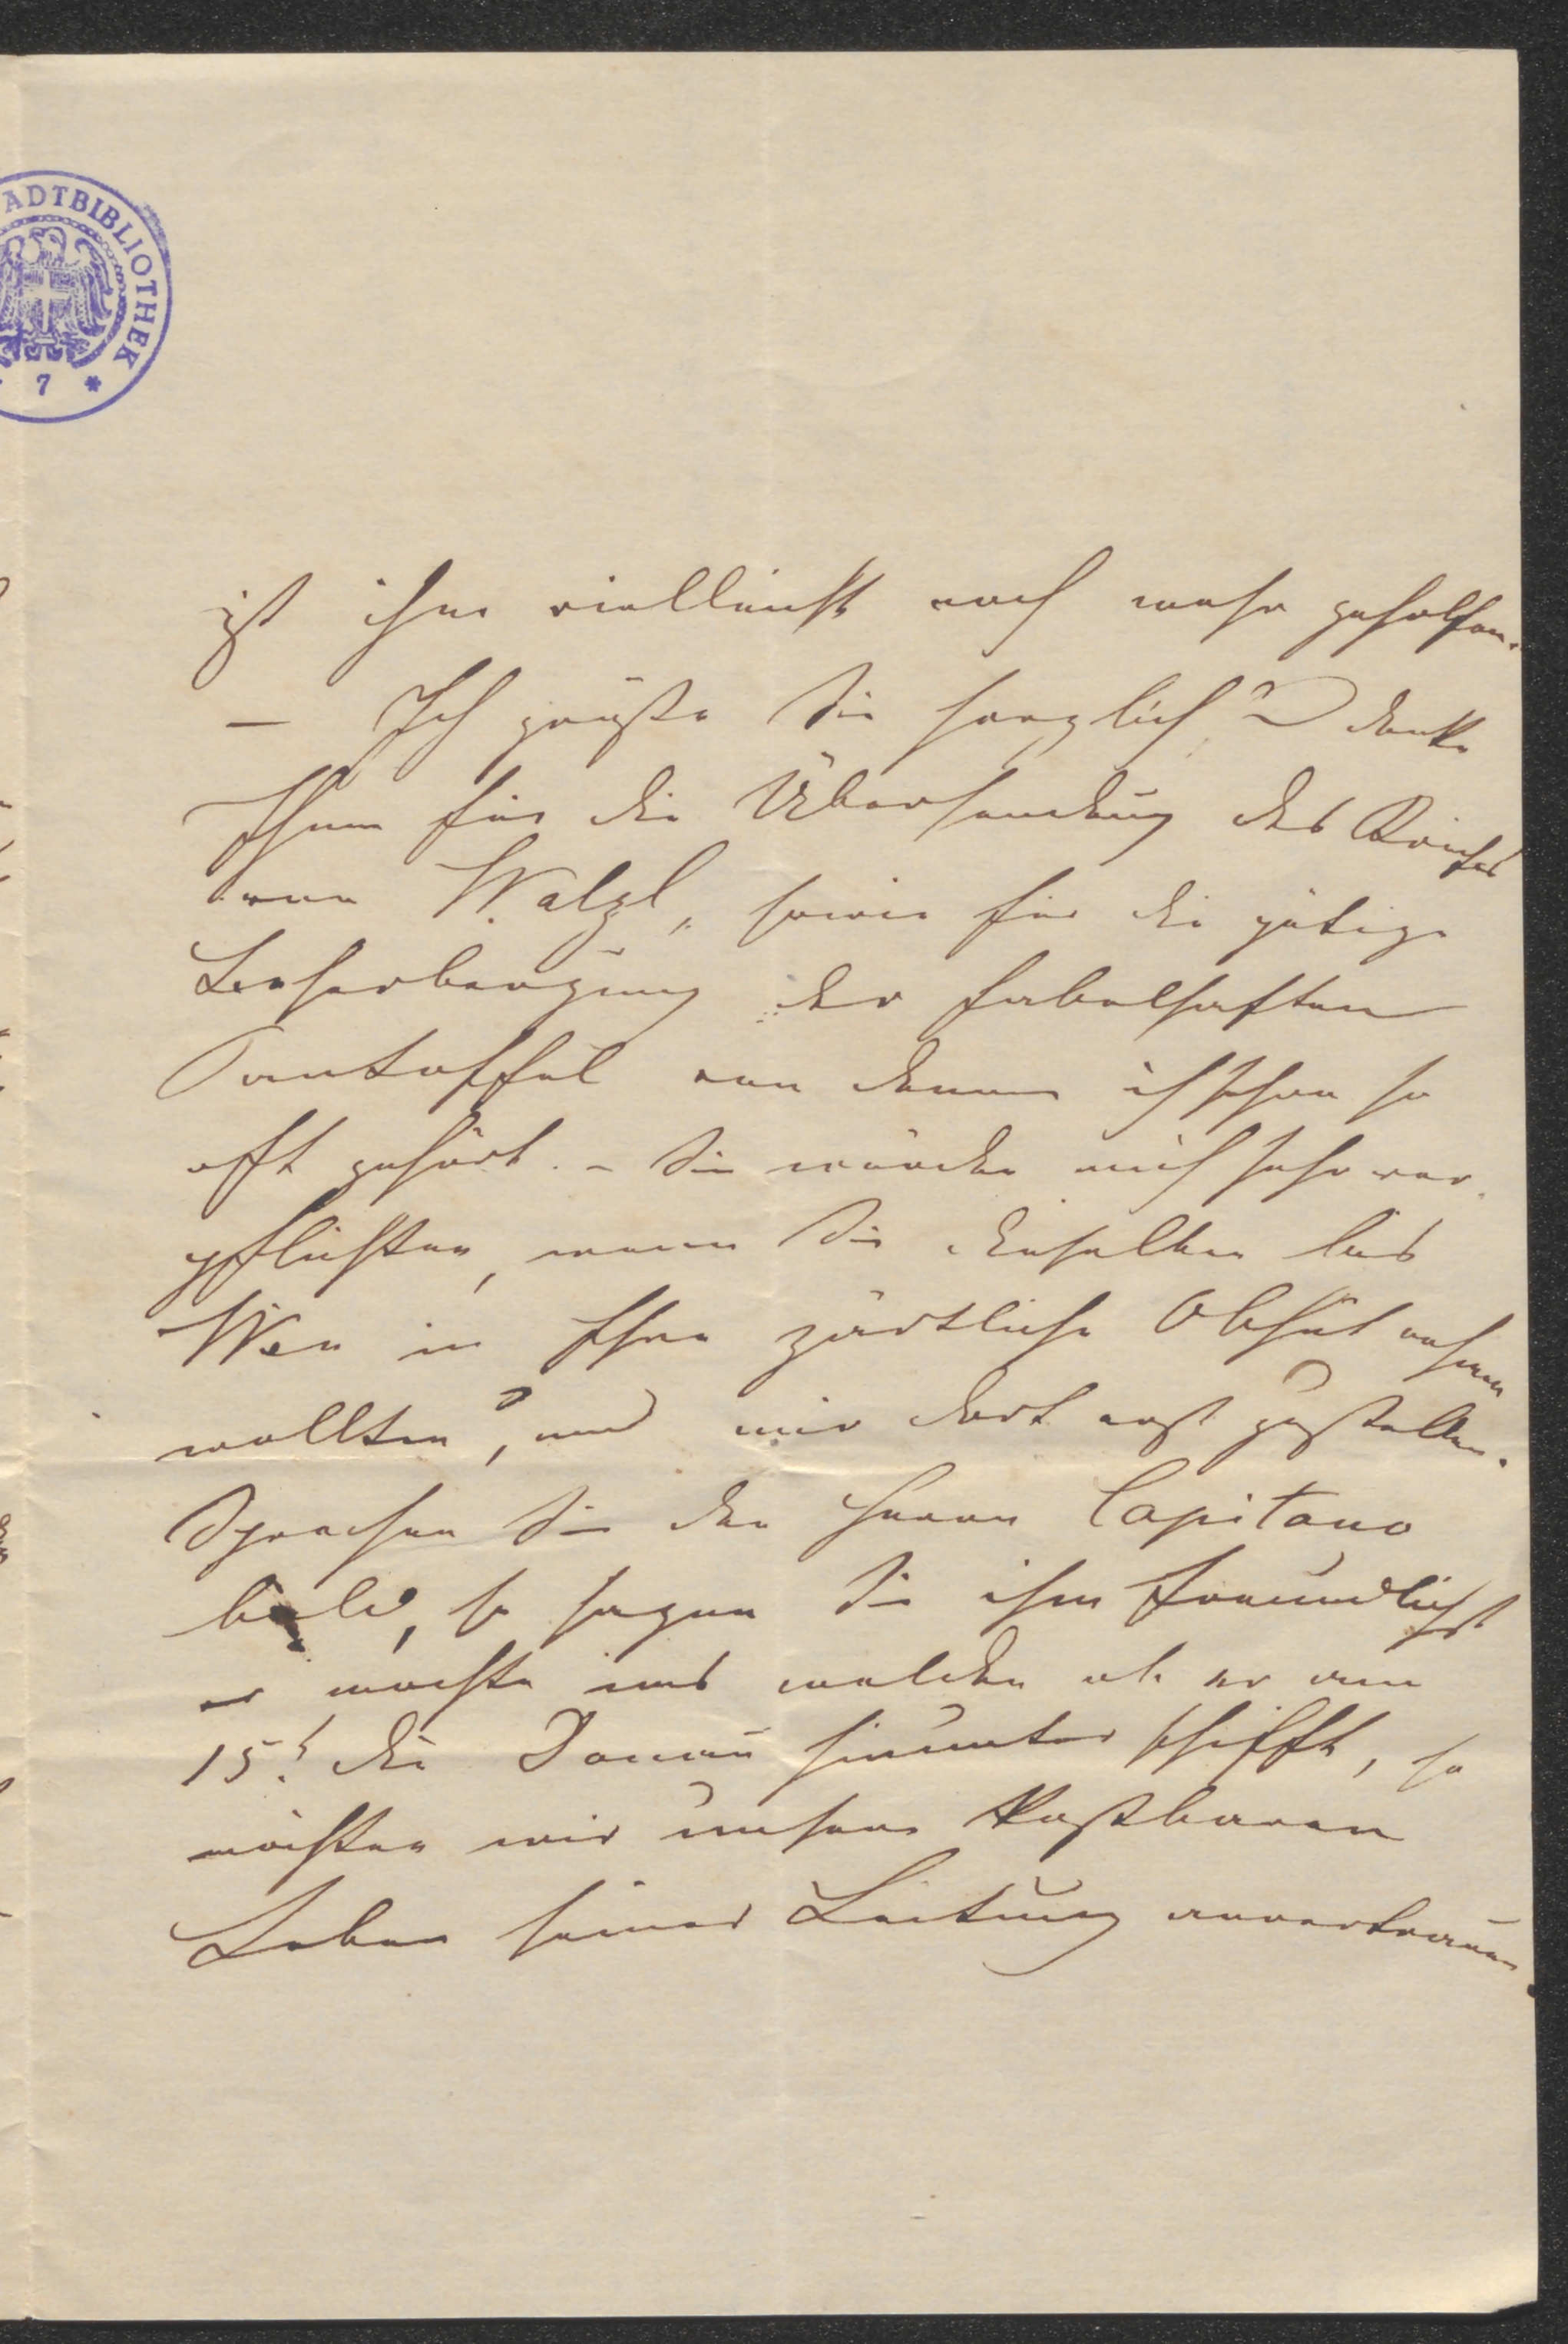 ADTBIBLIOTHEK
7 *
ist ihm vielleicht noch mehr geholfen.
— Ich grüße Sie herzlich & danke
Ihnen für die Übersendung des Briefes
von Walzl, sowie für die gütige
Beherbergung der fabelhaften
Pantoffel von denen ich schon so
oft gehört. – Sie würden mich sehr ver-
pflichten, wenn Sie dieselben bis
Wien in Ihre zärtliche Obhut nehmen
wollten, und mir dort erst zustellen.
Sprechen Sie den Herrn Capitano
bald, so sagen Sie ihm freundlichst
er möchte uns melden ob er am
15t die Donau hinunter schifft, so
möchten wir unsere kostbaren
Leben seiner Leitung anvertrauen.